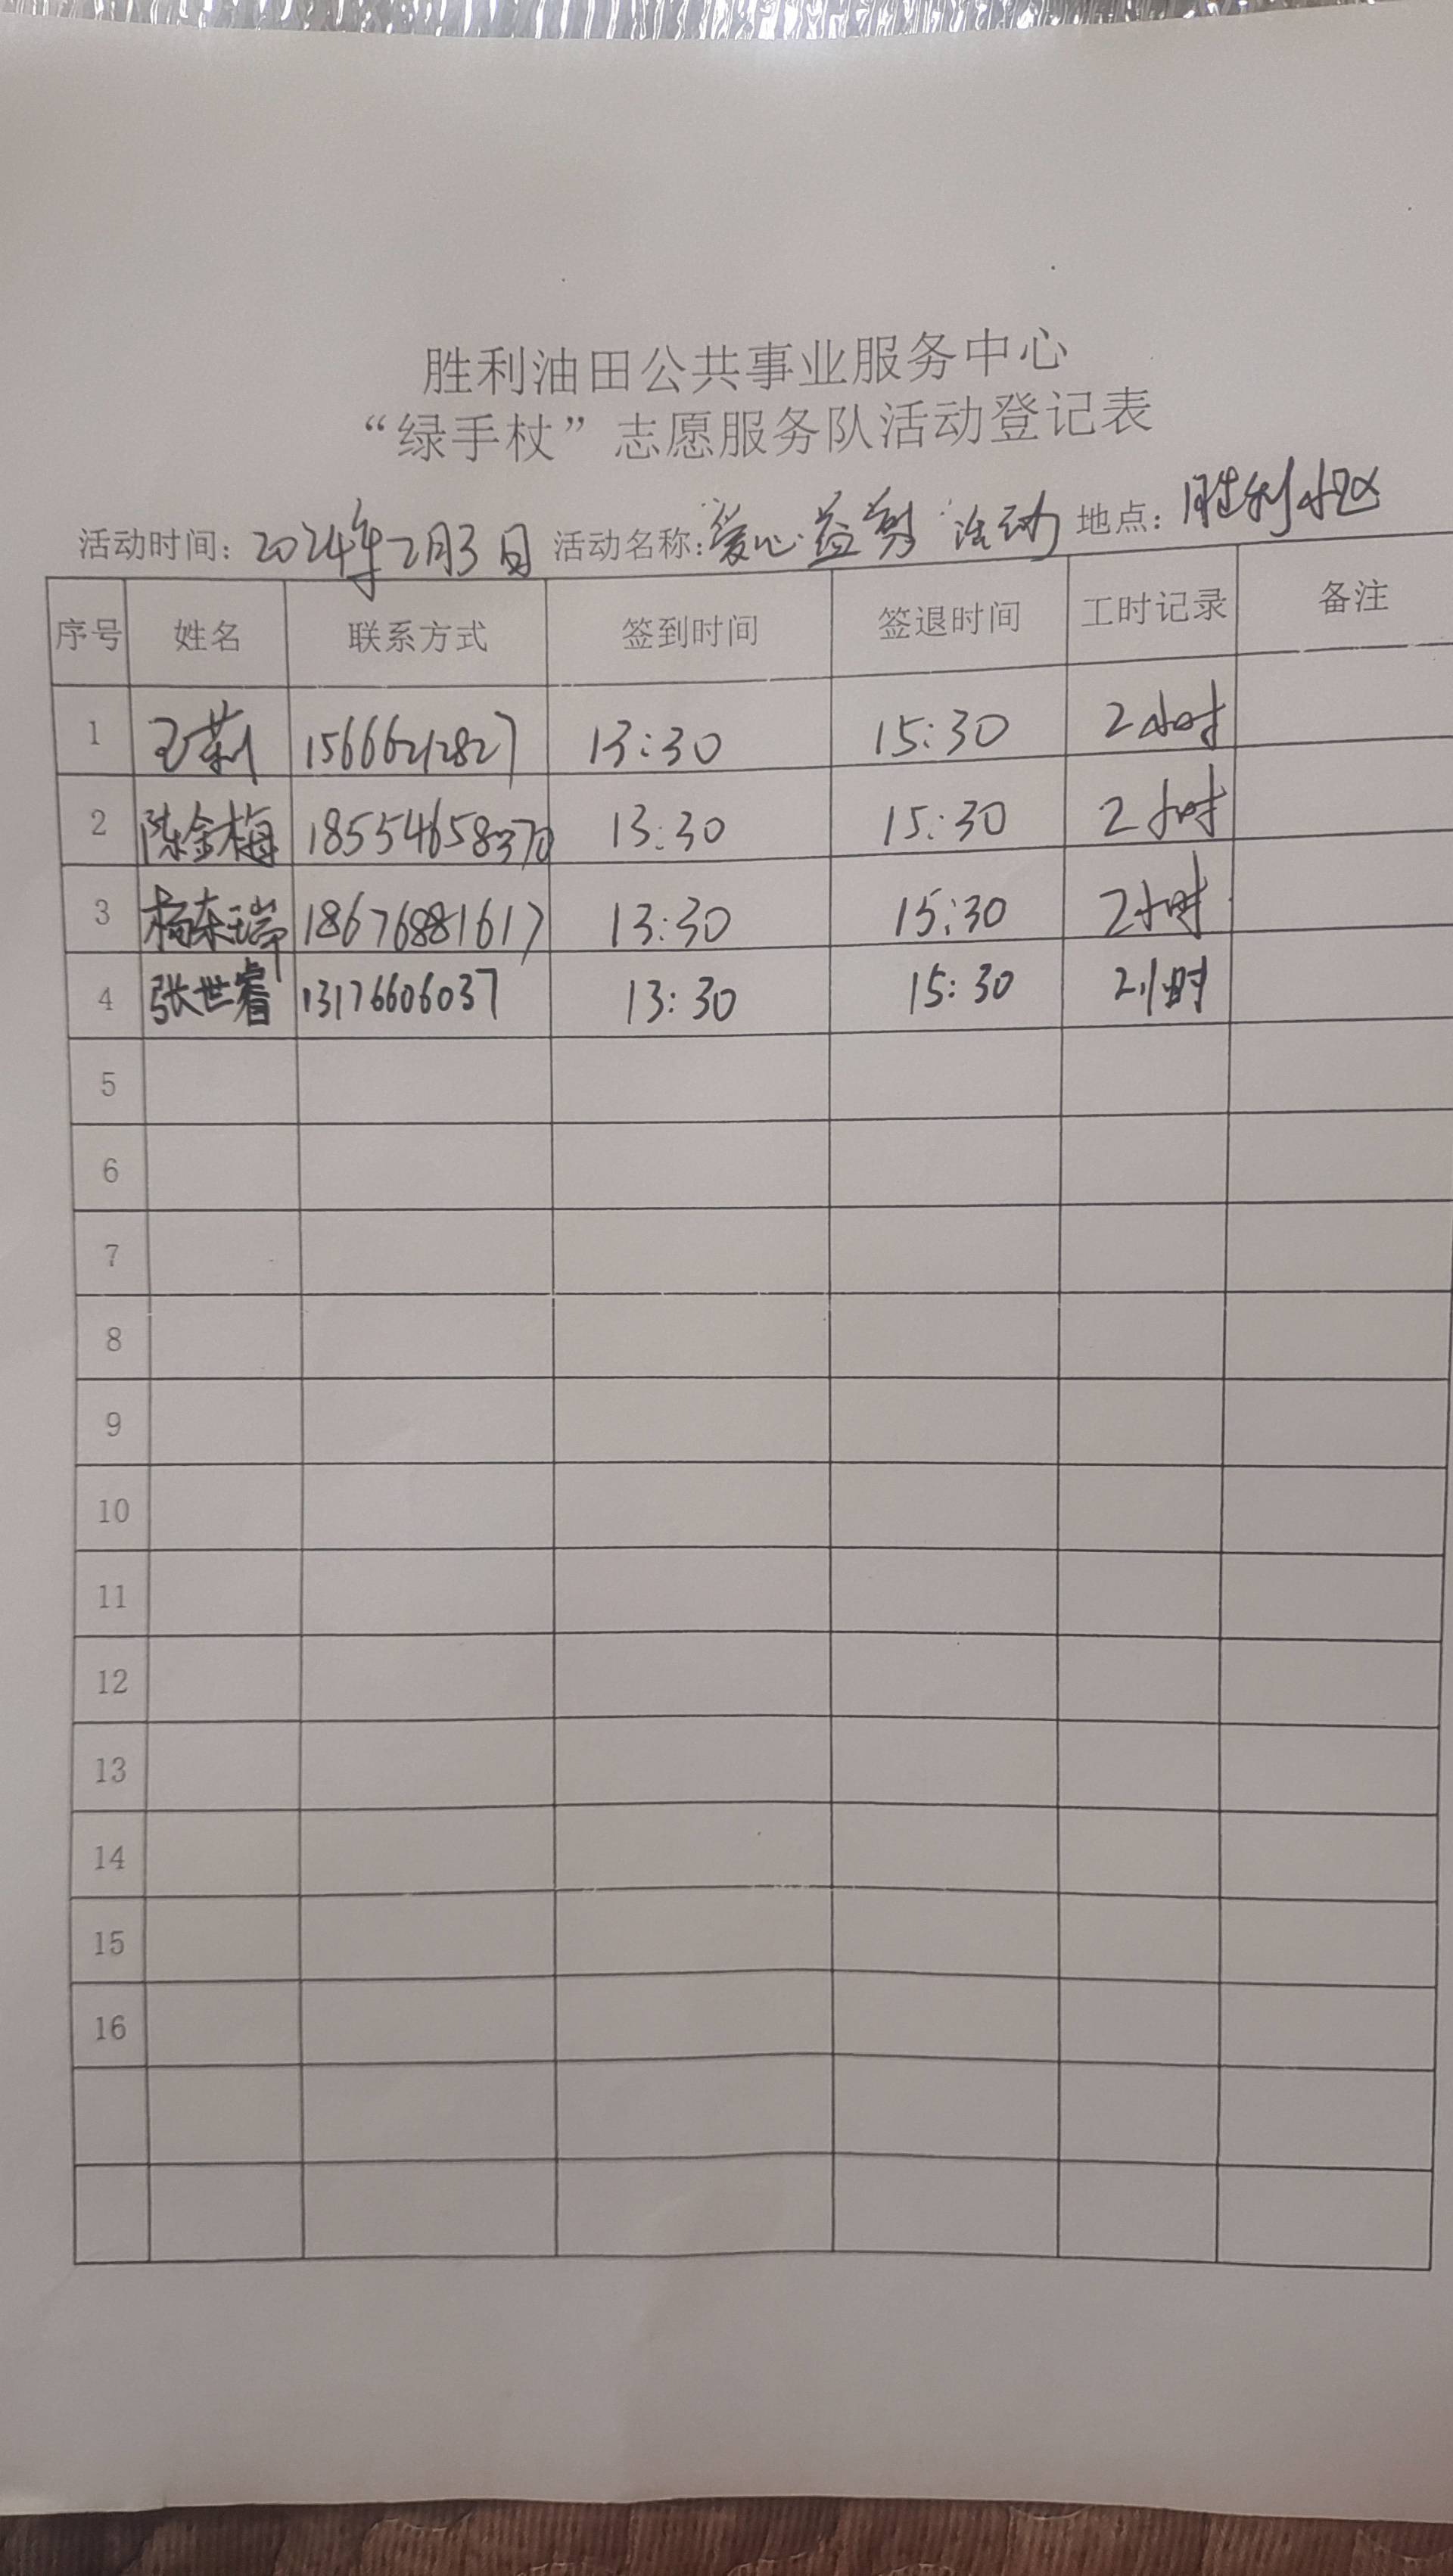 胜利油田公共事业服务中心
“绿手杖”志愿服务队活动登记表
活动时间: 2024年2月3日 活动名称: 爱心益剪 活动 地点: 胜利小区
序号 姓名 联系方式 签到时间 签退时间 工时记录 备注
1 王莉 15666212827 13:30 15:30 2小时
2 陈金梅 18554658370 13:30 15:30 2小时
3 杨东瑞 18676881617 13:30 15:30 2小时
4 张世睿 13176606037 13:30 15:30 2小时
5
6
7
8
9
10
11
12
13
14
15
16